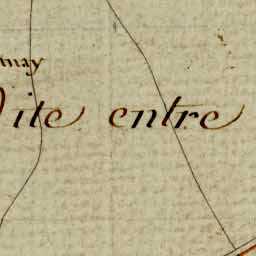 may
ite entre